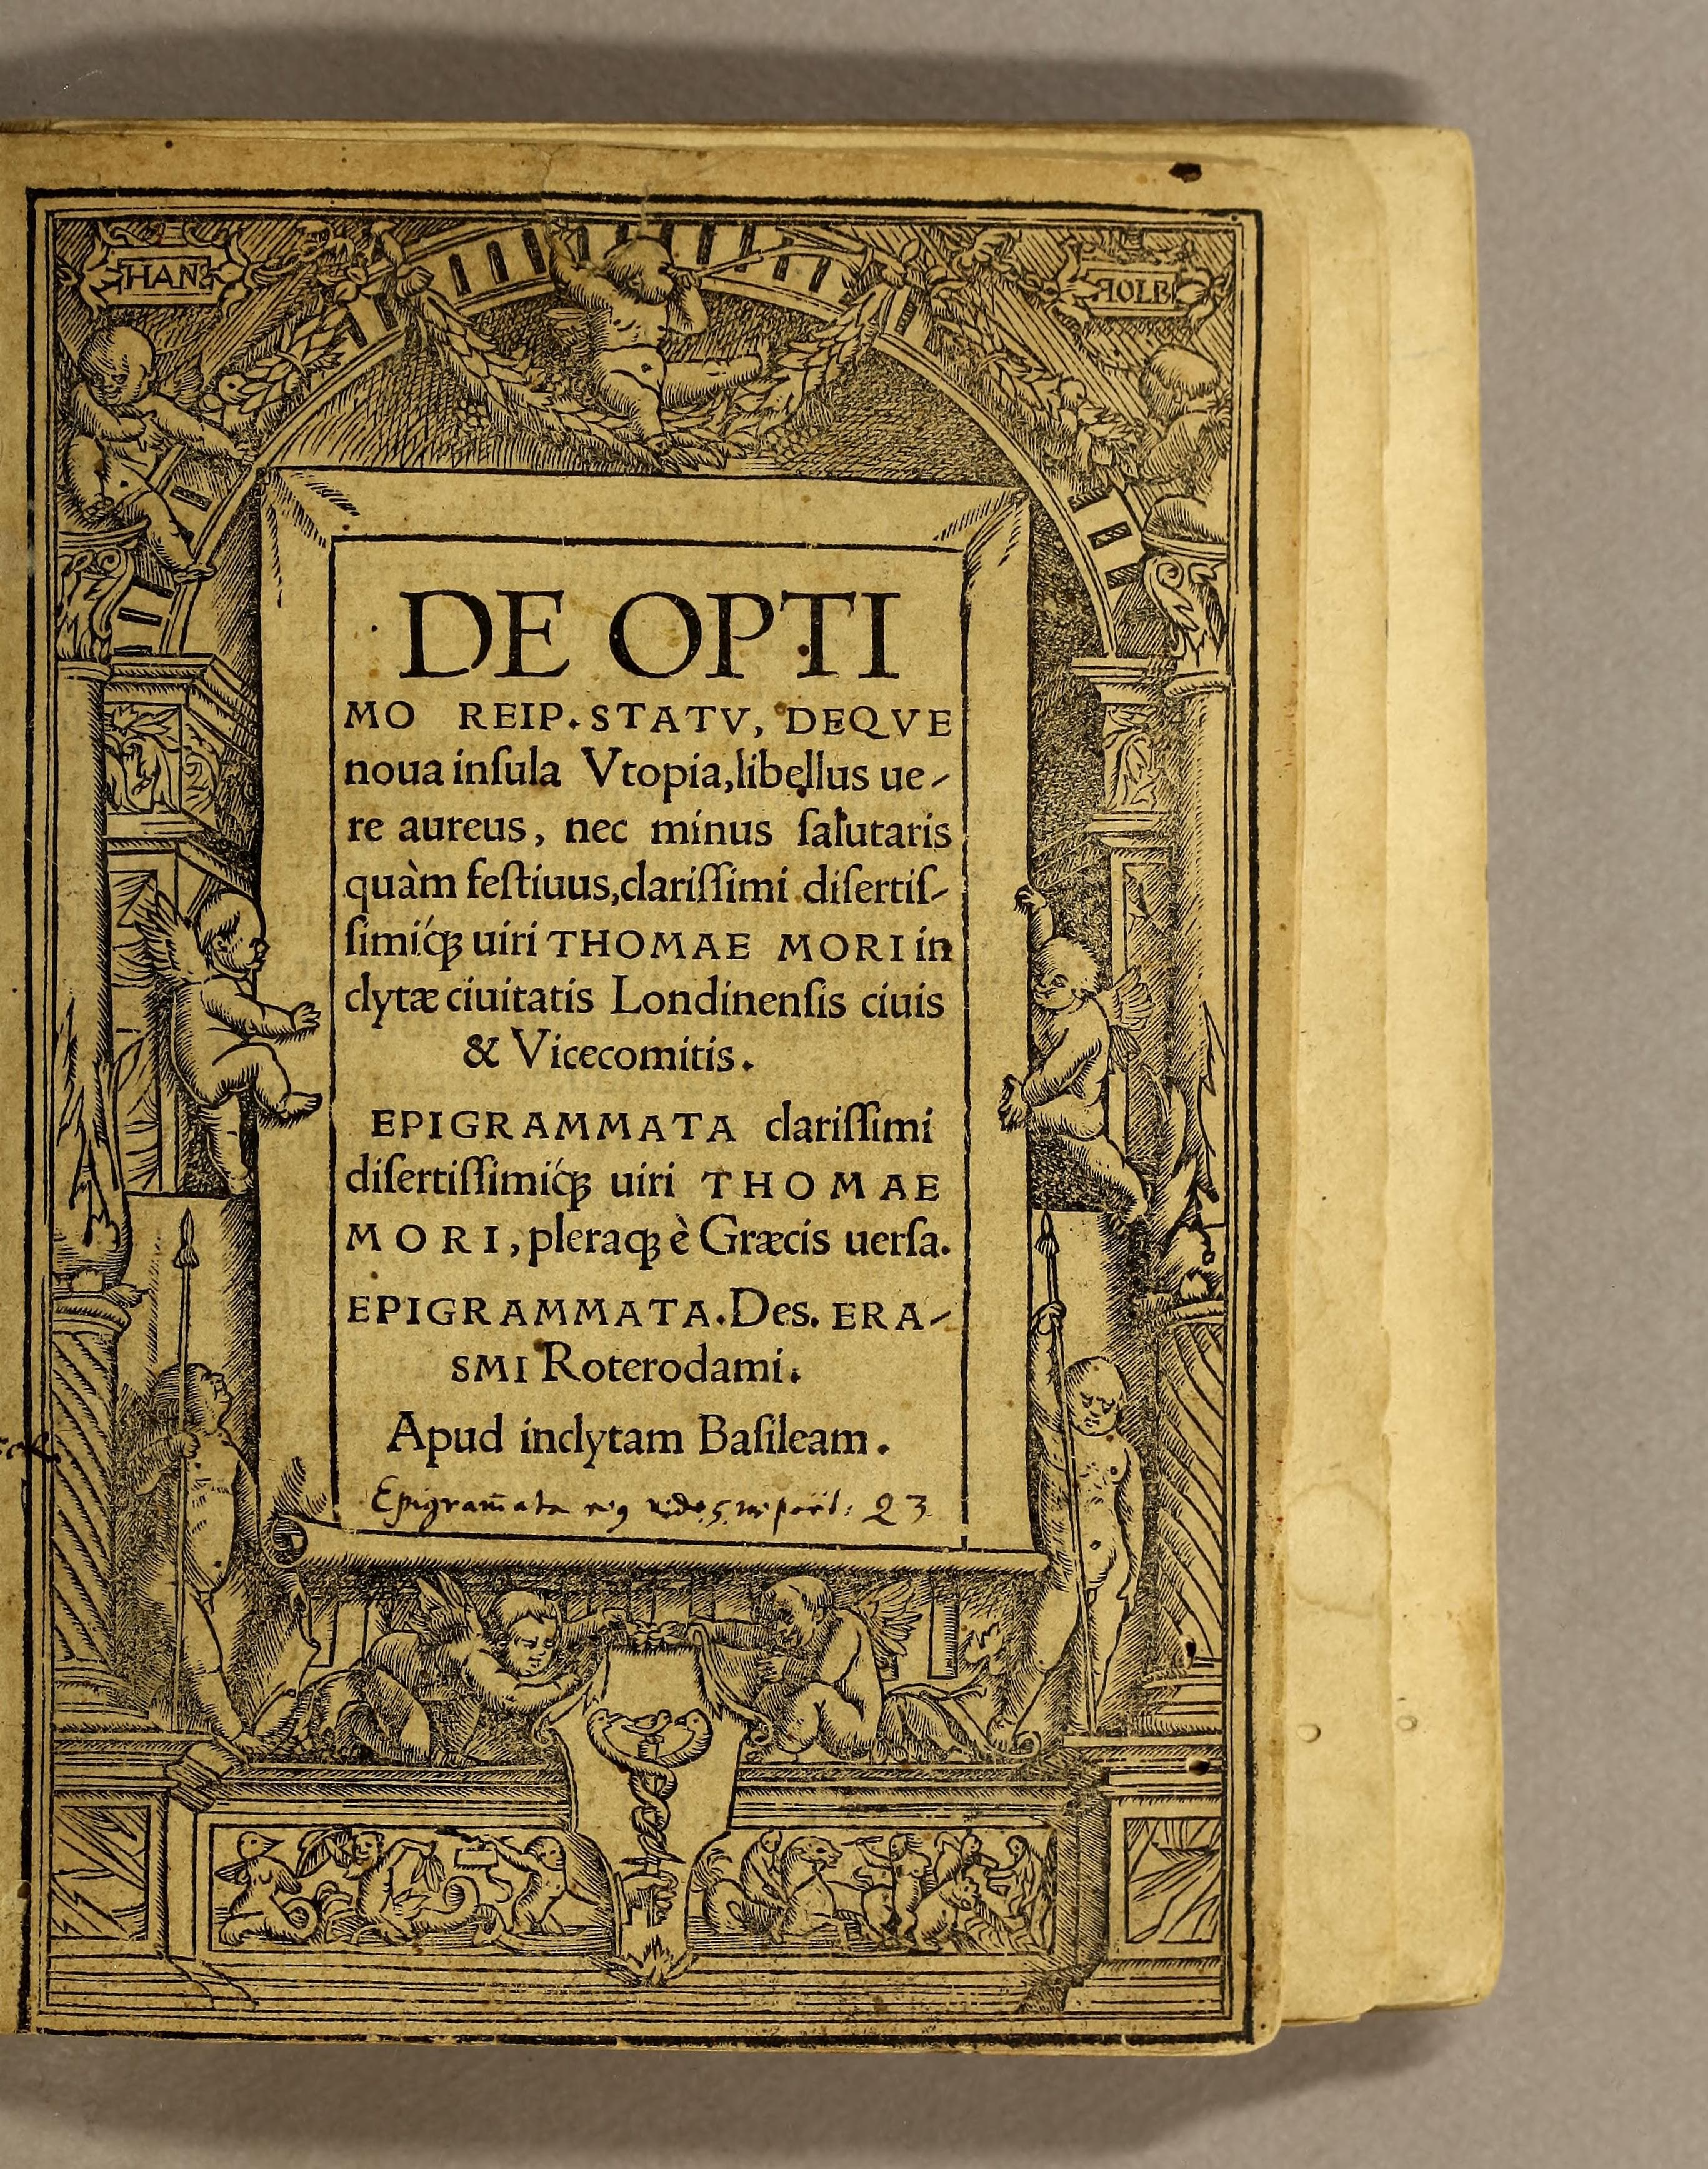 HANS
HOLB
DE OPTI
MO REIP. STATV, DEQVE
noua inſula Vtopia, libellus ue-
re aureus, nec minus ſalutaris
quàm feſtiuus, clariſſimi diſertiſ-
ſimiq́ꝫ uiri THOMAE MORI in
clytæ ciuitatis Londinenſis ciuis
& Vicecomitis.
EPIGRAMMATA clariſſimi
diſertiſſimiq́ꝫ uiri THOMAE
MORI, pleraqꝫ è Græcis uerſa.
EPIGRAMMATA. Des. ERA-
SMI Roterodami.
Apud inclytam Baſileam.
Epigram̄ata 23